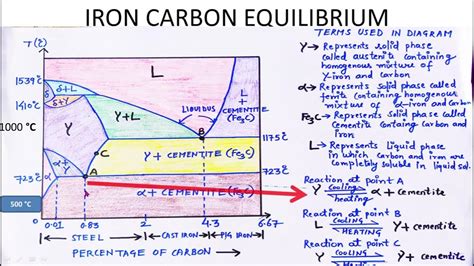 IRON CARBON EQUILIBRIUM
T(℃)
1539℃
1410℃
1000 °C
723℃
500 °C
δ+L
δ
δ+γ
γ
α+γ
α
γ+L
L
LIQUIDUS
L
+
CEMENTITE
(Fe3C)
B
1175℃
C
γ + CEMENTITE (Fe3C)
A
723℃
α + CEMENTITE (Fe3C)
0 0.01 0.83 2 4.3 6.67
STEEL
CAST IRON
PIG IRON
PERCENTAGE OF CARBON
TERMS USED IN DIAGRAM
γ → Represents solid phase
called austenite containing
homogenous mixture of
γ-iron and carbon
α → Represents Solid phase called
ferrite containing homogenous
mixture of α-iron and carbon
Fe3C → Represents solid phase called
Cementite containg Carbon and
iron
L → Represents Liquid phase
in which carbon and iron are
completely soluble in liquid sol.
Reaction at point A
γ cooling heating α + cementite
Reaction at point B
L COOLING HEATING γ + cementite
Reaction at point C
γ COOLING HEATING γ + cementite